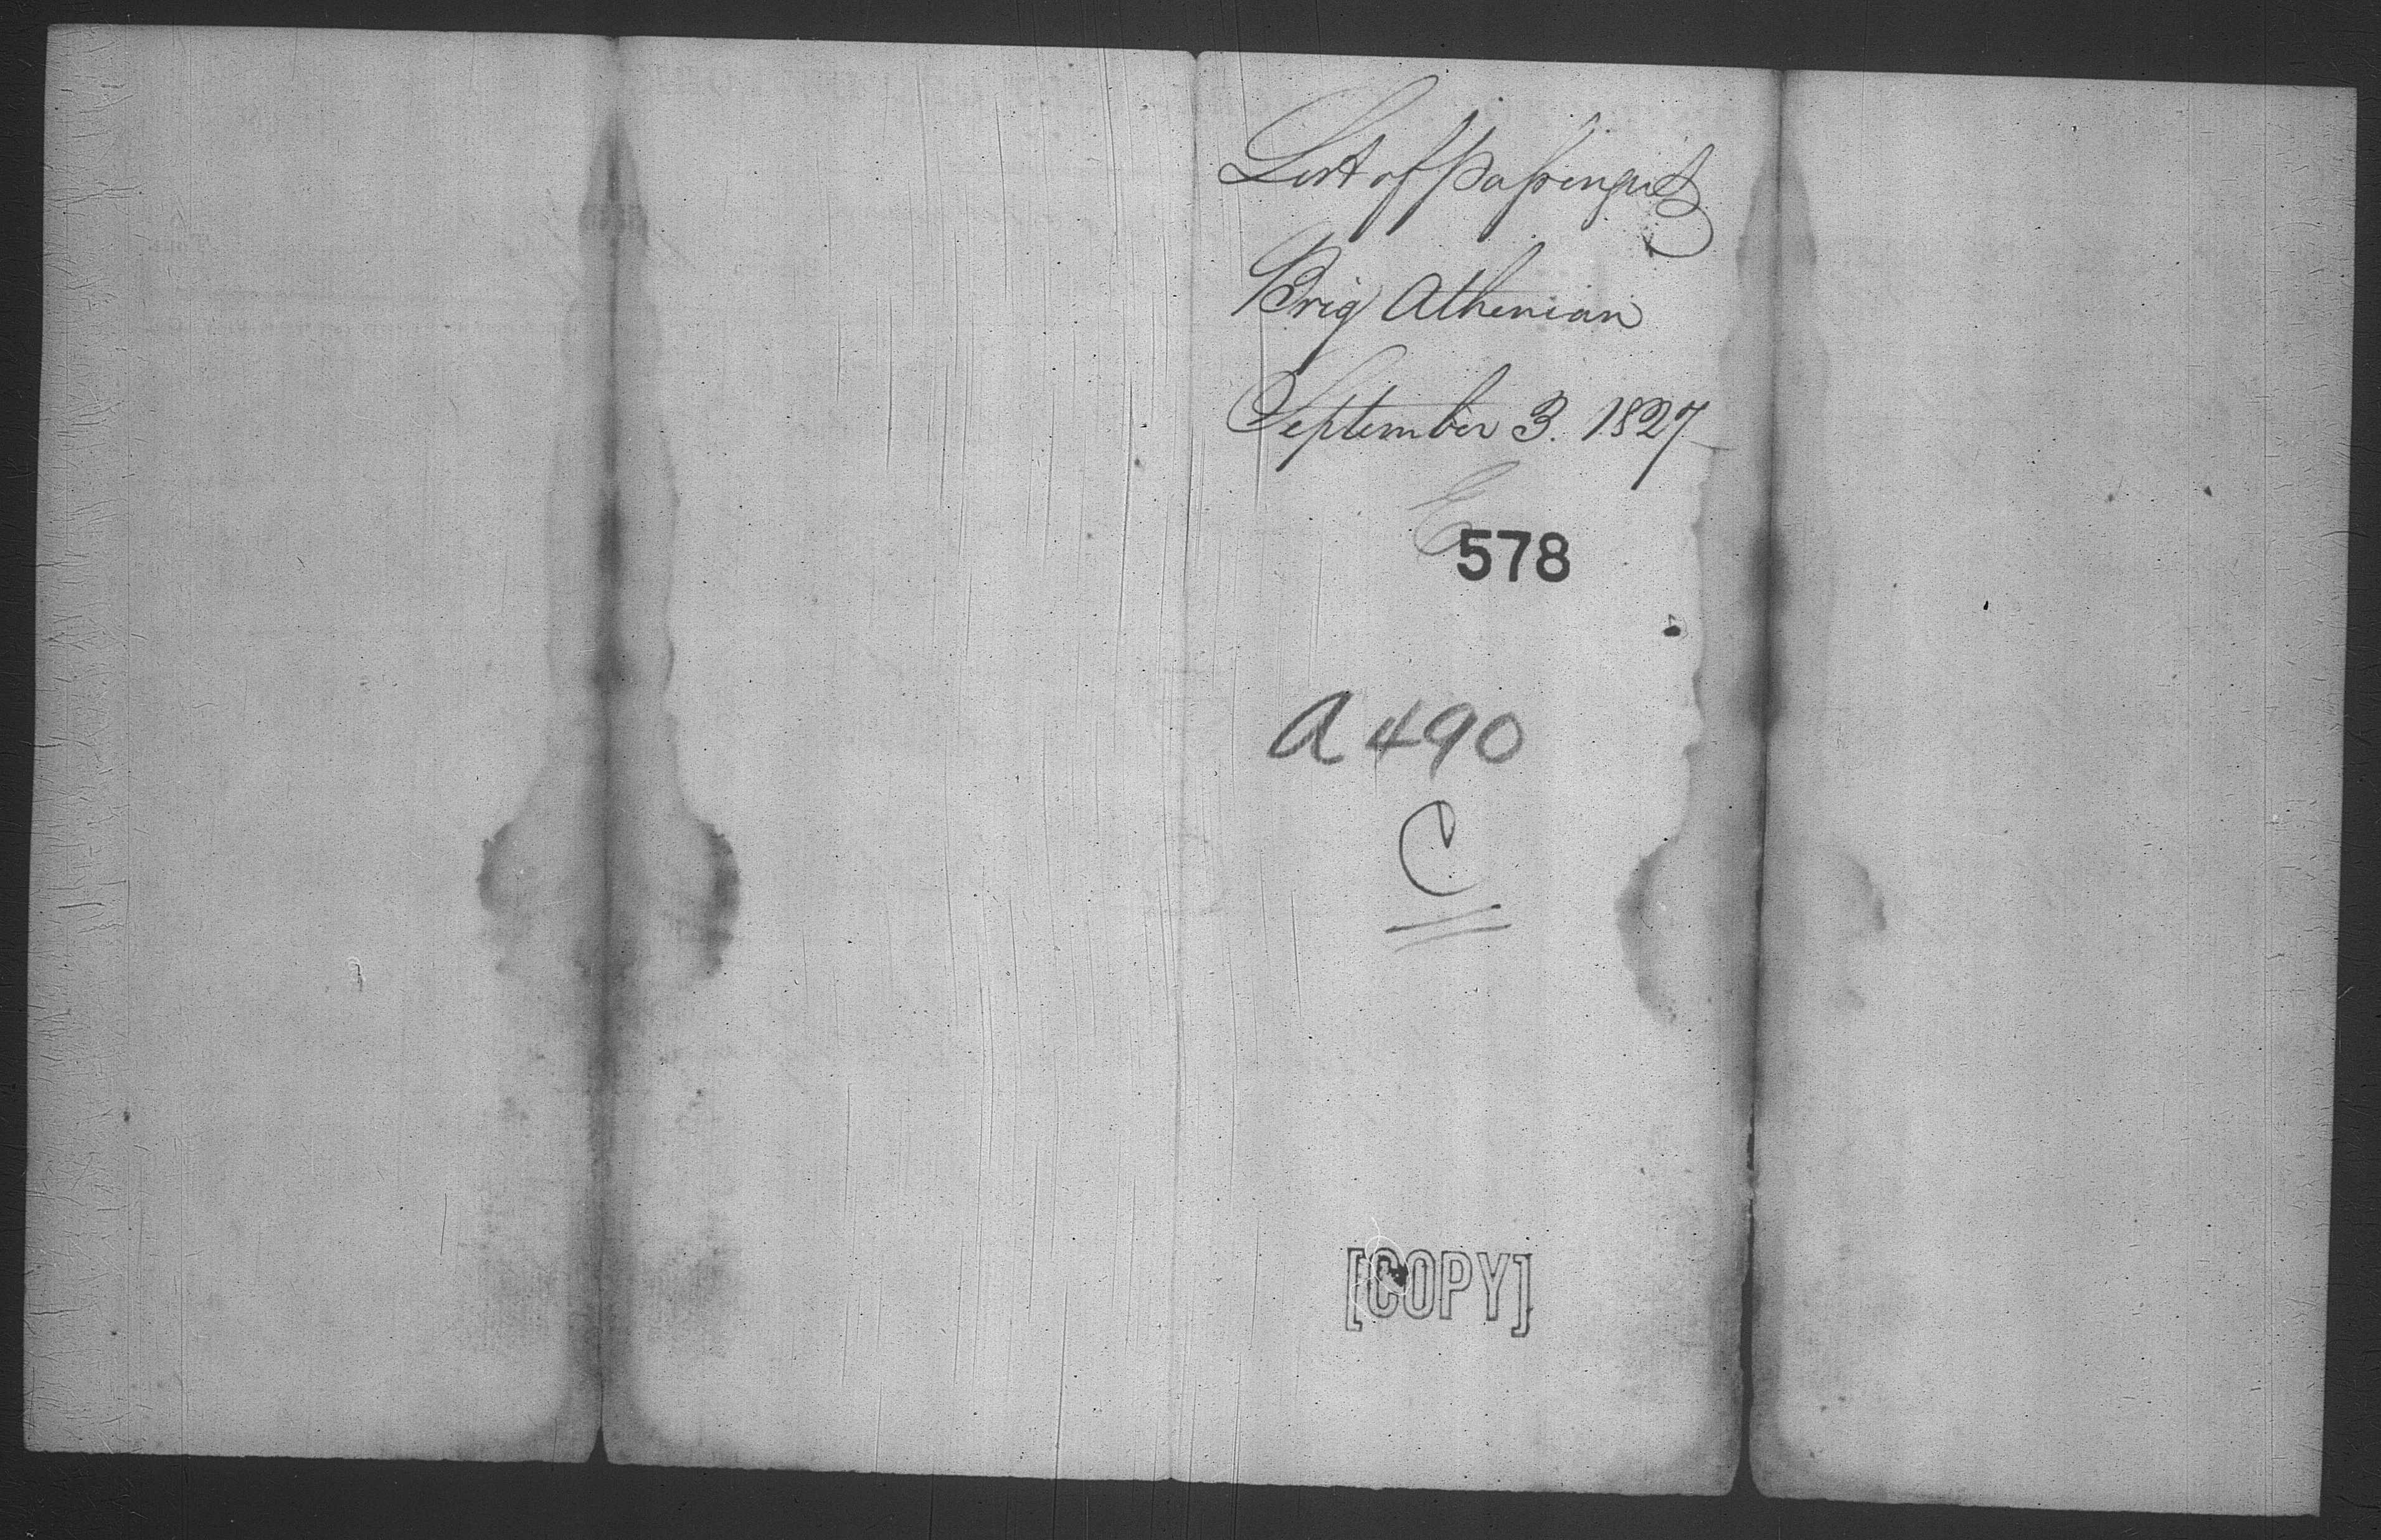 List of Passengers
Brig Athenian
September 3. 1827
E
578
A 490
C
[COPY]